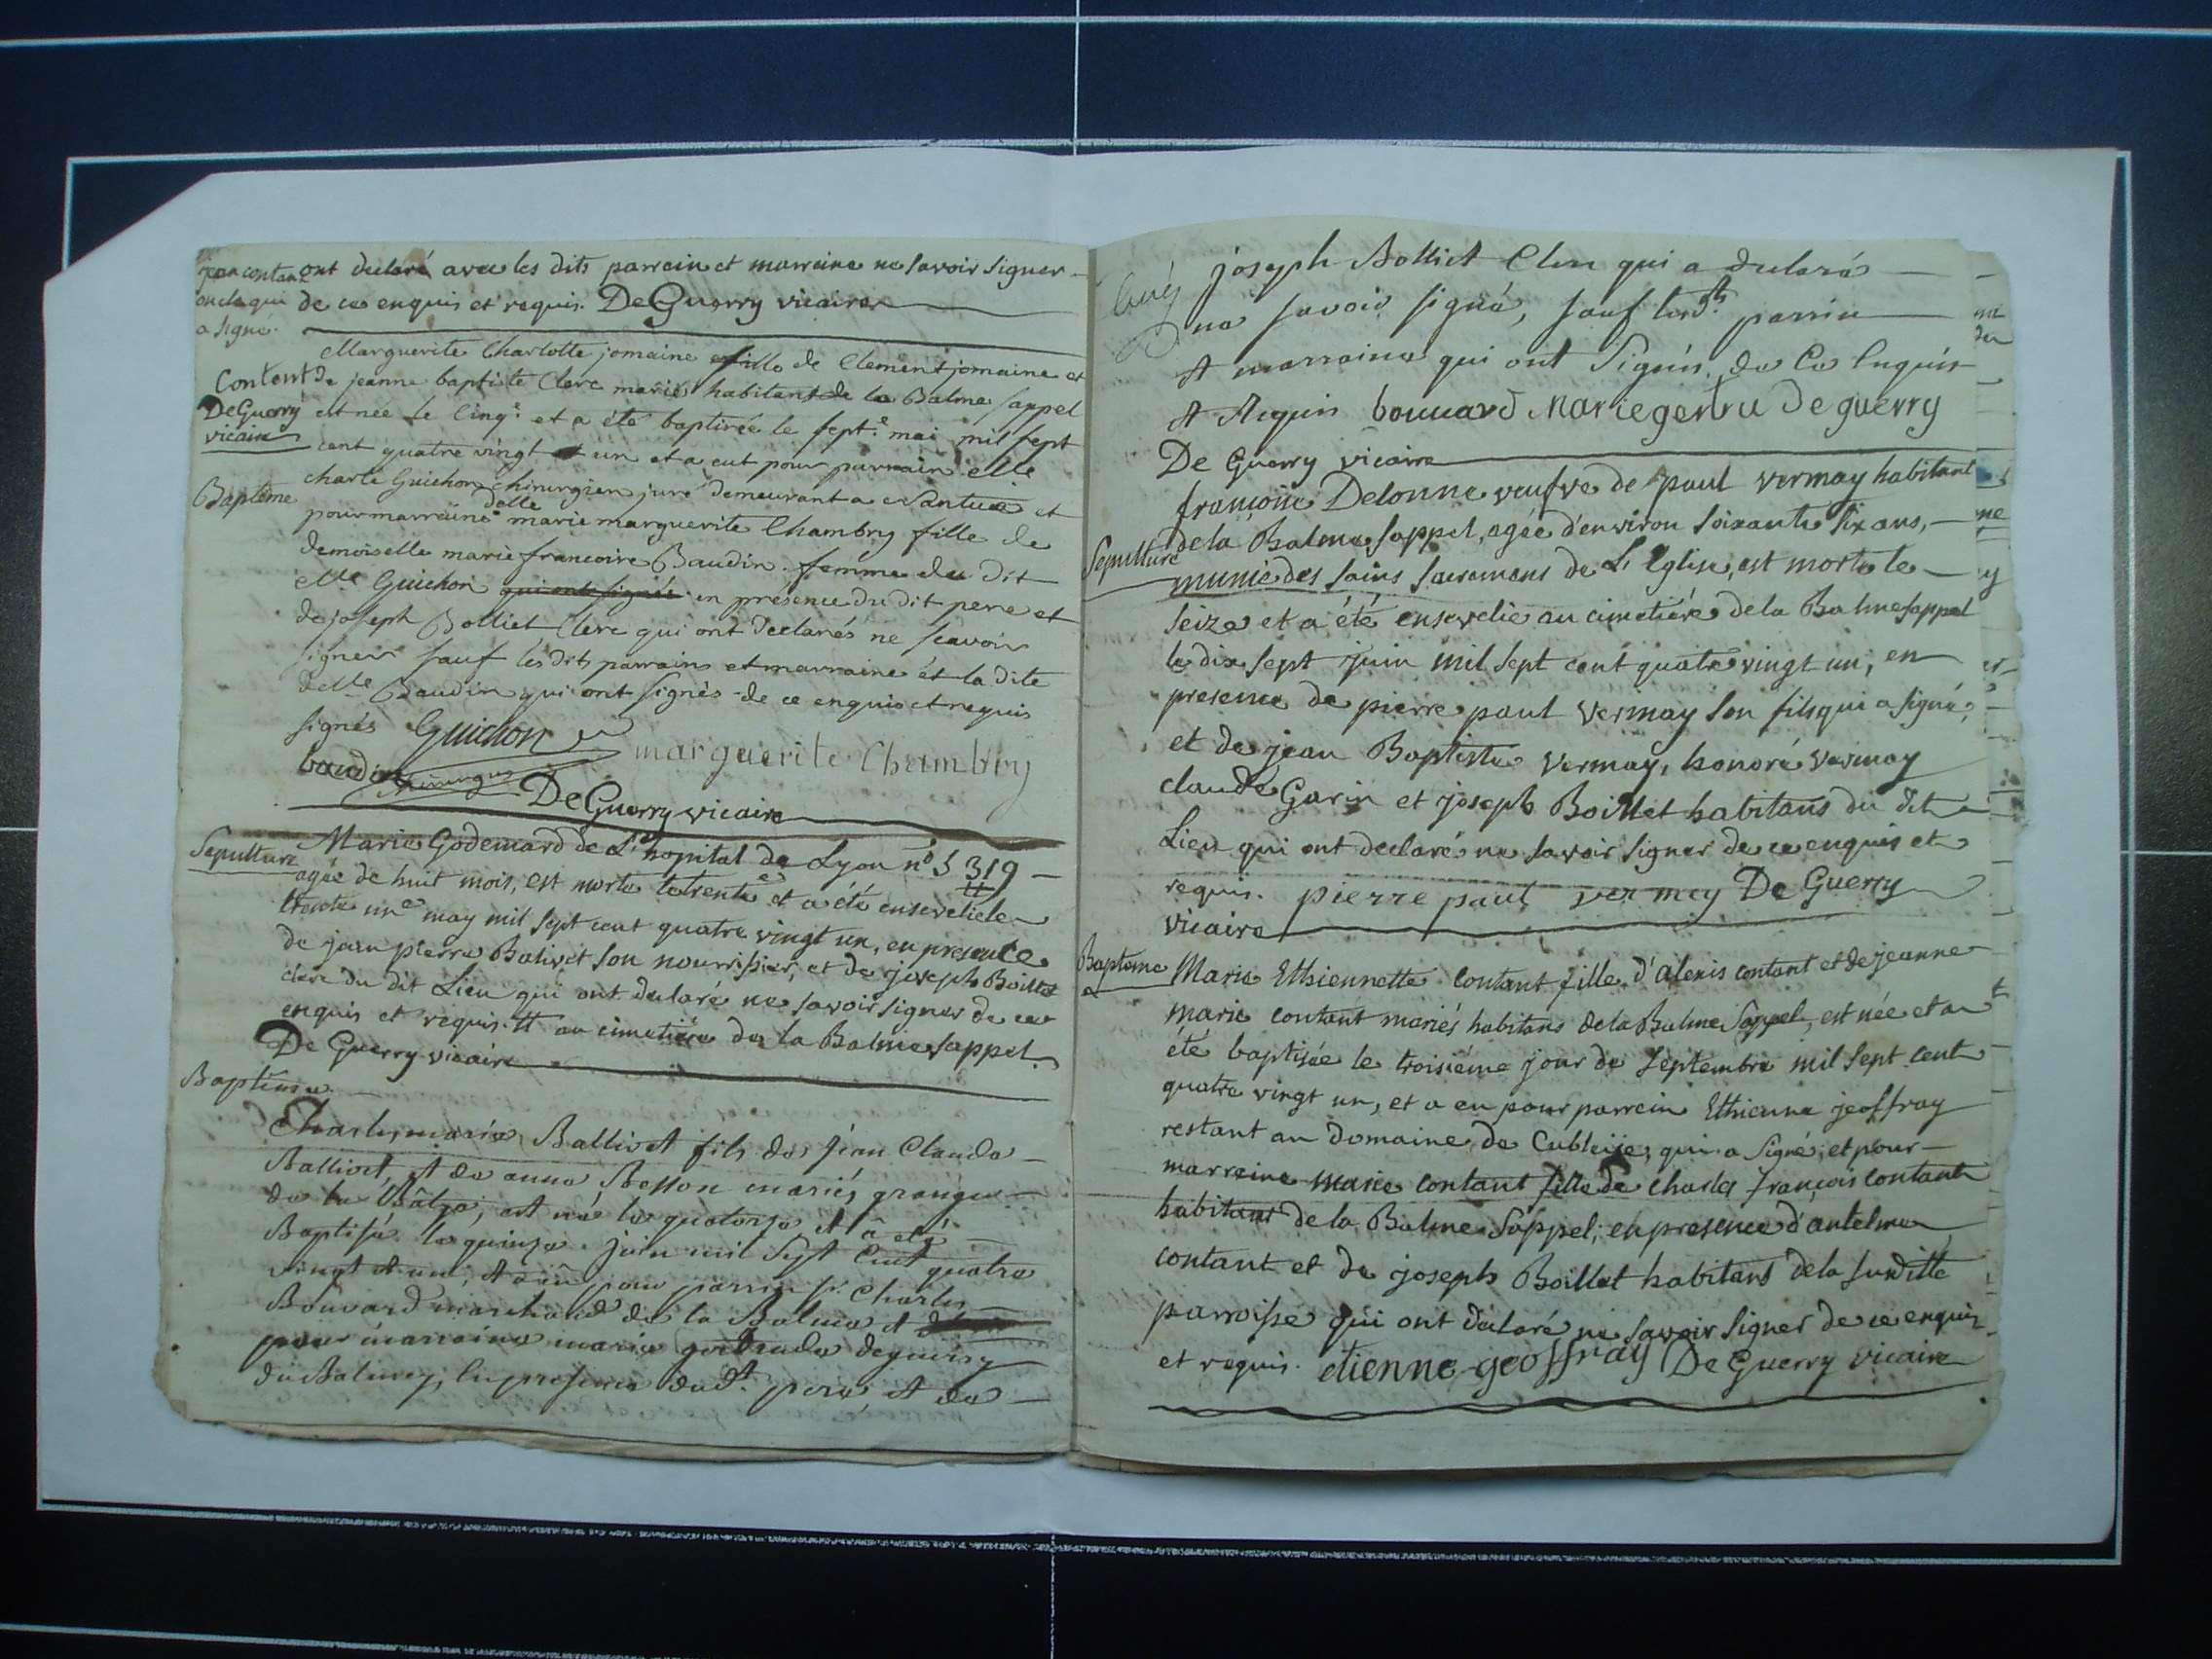 ont declaré avec les dits parrein et marreine ne savoir signer
jean contant
oncle qui
a signé.
de ce enquis et requis. De Guerry vicaire
Content
De Guerry
vicaire
Baptême
Marguerite Charlotte jomaine fille de Clement jomaine et
de jeanne baptiste Clerc mariés habitant de la Balme sappel
est née le cinq.e et a été baptisée le sept.e mai mil sept
cent quatre vingt et un et a eut pour parrain
charle Guichon chirurgien juré demeurant a Nantua et
pour marreine delle marie marguerite Chambry fille de
demoiselle marie francoise Baudin femme du dit
Guichon qui ont signés en présence du dit pere et
de joseph Bolliet Clerc qui ont declarés ne scavoir
signer sauf les dits parrains et marraine et la dite
delle Baudin qui ont signés de ce enquis et requis
signés Guichon
marguerite Chambry
baudin
De Guerry vicaire
Sepulture
Marie Godemard de L'hopital de Lyon n.o 5319
agée de huit mois, est morte le trente et a été ensevelie le
trente un.e may mil sept cent quatre vingt un, en presence
de jean pierre Balivet son nourrissier, et de joseph Boillet
clerc du dit Lieu qui ont declaré ne savoir signer de ce
enquis et requis. tt au cimetiére de la Balme sappel
De Guerry vicaire
Baptême
Charles marie Ballivet fils de jean Claude
Ballivet, et de anne Besson mariés granger
de la est né le quatorze et a eté
Baptisé le quinze juin mil Sept Cent quatre
vingt et un, et a eû pour parrin Sr. Charles
Bouvard marchand de la Balme et
pour marraine marie gertrude deguerry
du Balmey, En presence dud.t pere, et de
joseph Bolliet Clerc qui a declarés
ne savoir signé, sauf lesd.ts parrin
et marraine qui ont Signés, de Ce Enquis
et Requis bouuard Marie gertru De guerry
De Guerry vicaire
Sepulture
françoise Delonne veufve de paul vermay habitant
de la Balme sappel, agée d'environ soixante six ans,
munie des sains sacremens de L'Eglise, est morte le
seize et a été ensevelie au cimetiére de la Balme sappel
le dix sept juin mil sept cent quatre vingt un, en
presence de pierre paul vermay son fils qui a signé,
et de jean Baptiste vermay, honoré vermay
claude Garin et joseph Boillet habitans du dit
Lieu qui ont declaré ne savoir signer de ce enquis et
requis. pierre paul ver mey De Guerry
vicaire
Bapteme
Marie Ethiennette contant fille d'alexis contant et de jeanne
marie contant mariés habitans de la Balme Sappel, est née et a
été baptisée le troisiéme jour de Septembre mil sept cent
quatre vingt un, et a eu pour parrein Ethienne jeoffray
restant au Domaine de Cubleije, qui a Signé; et pour
marreine marie contant fille de charles françois contant
habitant de la Balme Sappel; en presence d'antelme
contant et de joseph Boillet habitans de la susditte
parroisse qui ont declaré ne savoir signer de ce enquis
et requis. etienne geoffray De Guerry vicaire